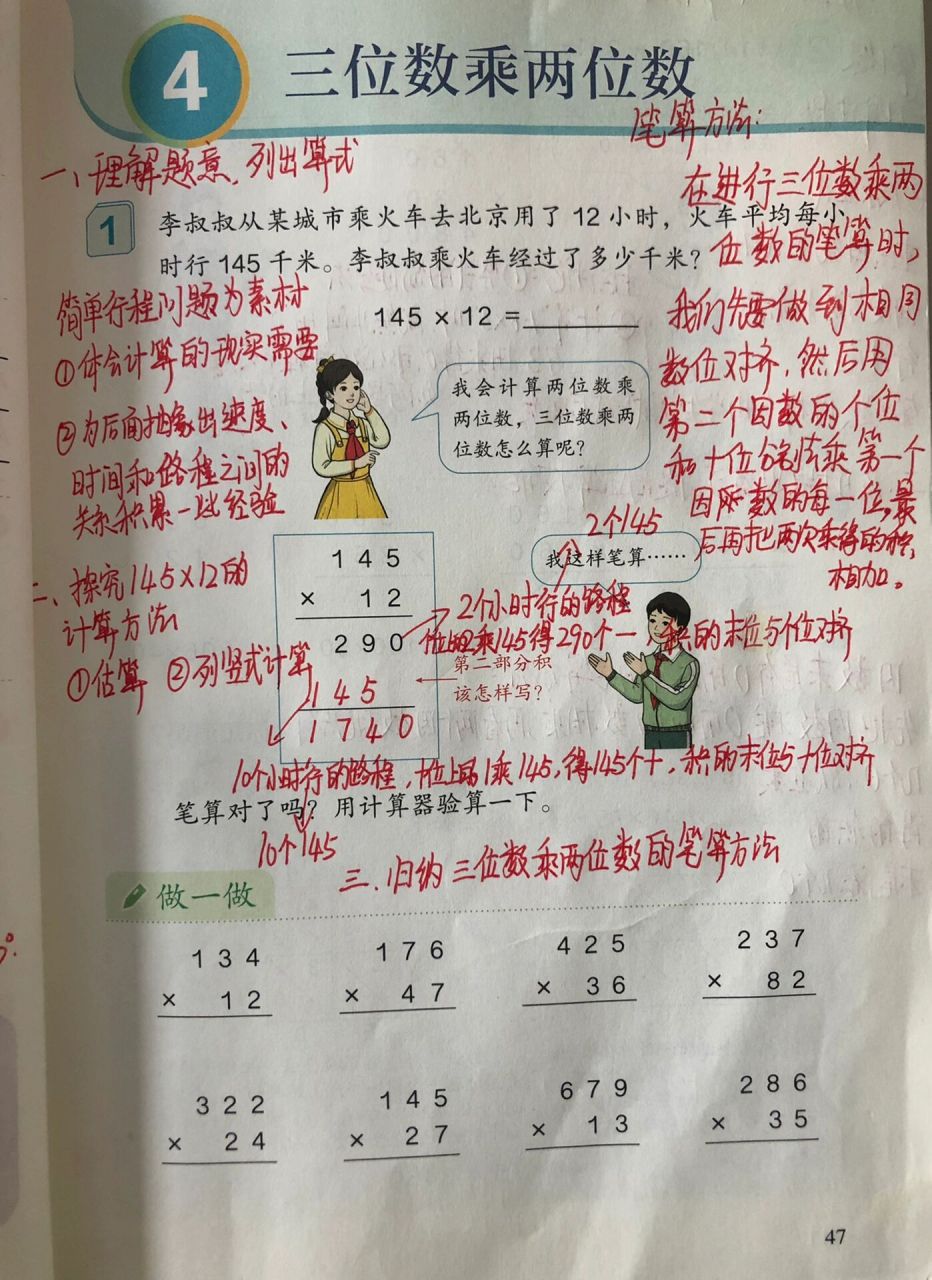 4
三位数乘两位数
笔算方法：
一、理解题意，列出算式
在进行三位数乘两
位数的笔算时，
我们先要做到相同
数位对齐，然后用
第二个因数的个位
和十位分别去乘第一个
因数的每一位，最
后再把两次乘得的积
相加。
1
李叔叔从某城市乘火车去北京用了 12 小时，火车平均每小
时行 145 千米。李叔叔乘火车经过了多少千米？
145 × 12 =
简单行程问题为素材
①体会计算的现实需要
②为后面抽象出速度、
时间和路程之间的
关系积累一些经验
我会计算两位数乘
两位数，三位数乘两
位数怎么算呢？
2个145
我这样笔算……
二、探究145×12的
计算方法
①估算 ②列竖式计算
145
× 12
290
145
1740
2个小时行的路程
个位上的2乘145得290个一，积的末位与个位对齐
第二部分积
该怎样写？
10个小时行的路程，十位上的1乘145，得145个十，积的末位与十位对齐
笔算对了吗？用计算器验算一下。
10个145
三、归纳三位数乘两位数的笔算方法
做一做
134 176 425 237
× 12 × 47 × 36 × 82
322 145 679 286
× 24 × 27 × 13 × 35
47